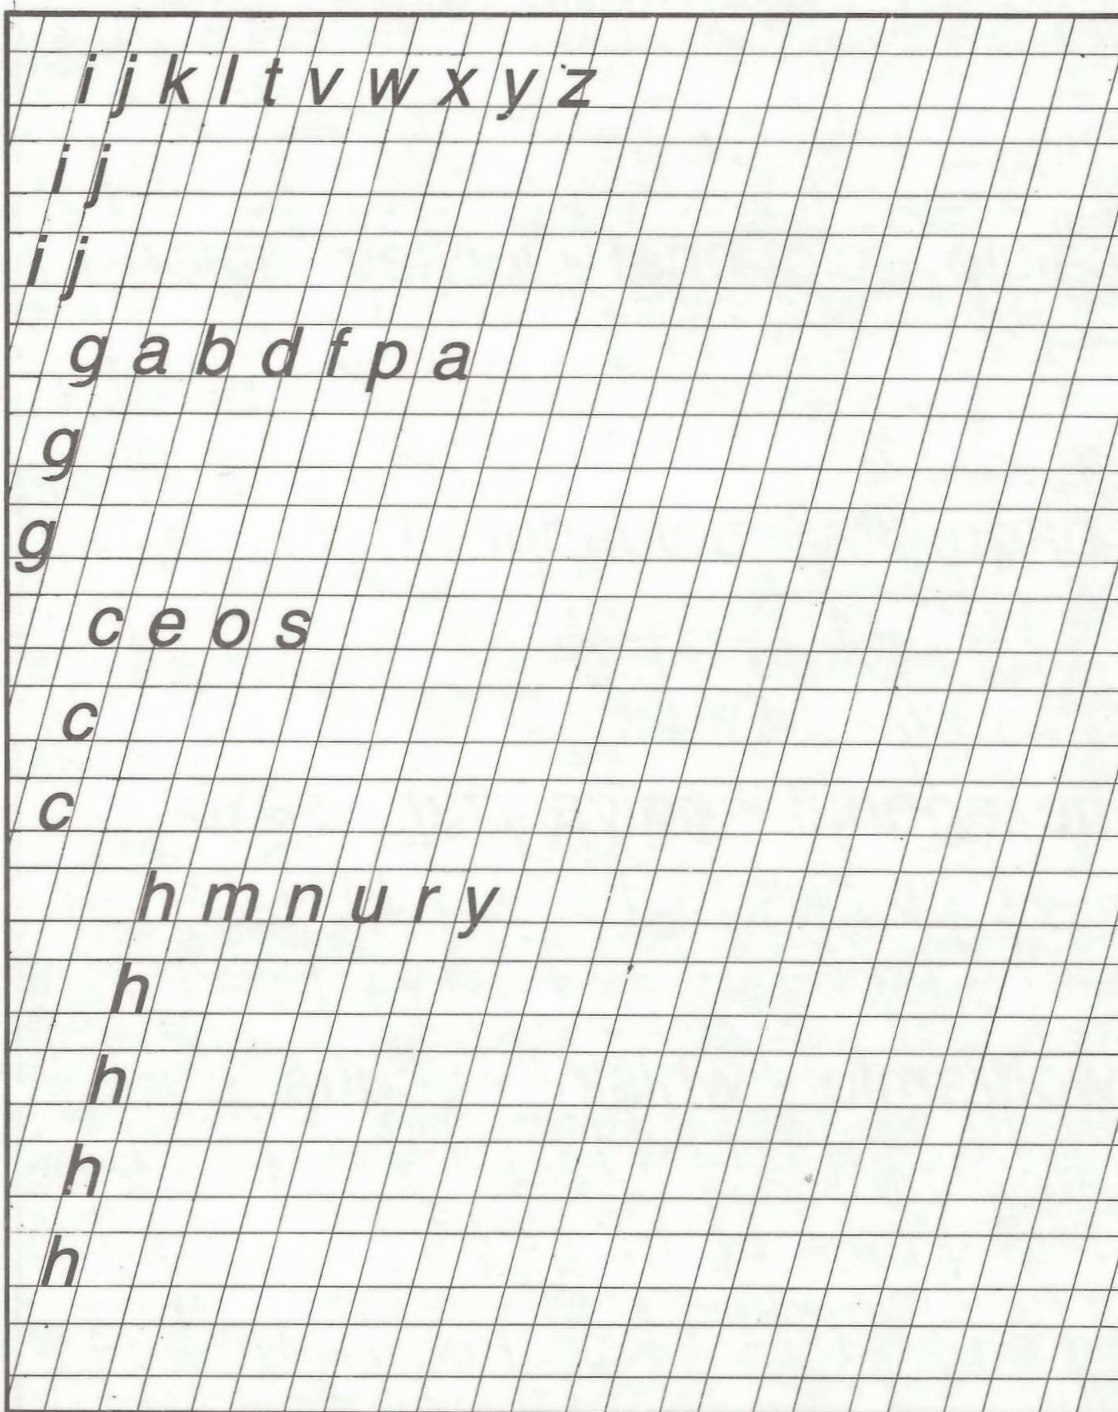 i j k l t v w x y z
i j
i j
g a b d f p a
g
g
c e o s
c
c
h m n u r y
h
h
h
h